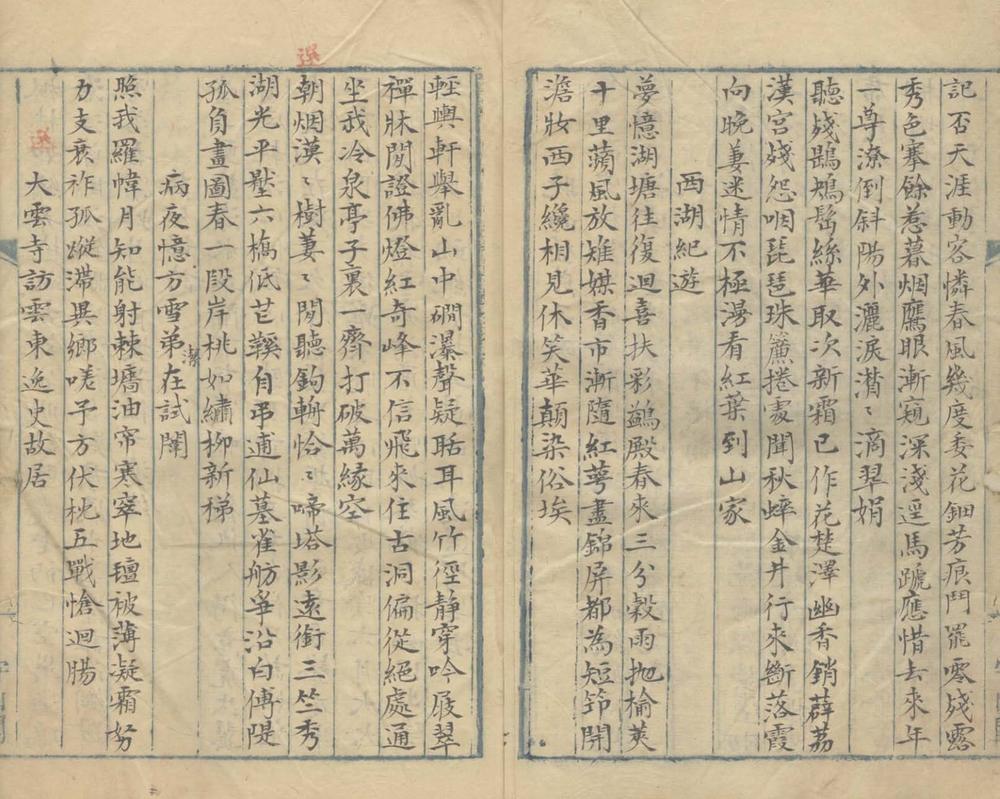 記否天涯動客憐春風幾度委花鈿芳痕鬥罷零殘露
秀色搴餘惹暮烟鷹眼漸窺深淺逕馬蹏應惜去來年
一尊潦倒斜陽外灑淚潸〻滴翠娟
聽殘鶗鴂髩絲華取次新霜已作花楚澤幽香銷薜荔
漢宮殘怨咽琵琶珠簾捲處聞秋蟀金井行來斷落霞
向晚萋迷情不極漫看紅葉到山家
西湖紀遊
夢憶湖塘往復迴喜扶彩鷁殿春來三分穀雨抛榆莢
十里蘋風放雉媒香市漸隨紅萼盡錦屏都為短筇開
澹妝西子纔相見休笑華顛染俗埃
輕輿軒舉亂山中磵瀑聲疑聒耳風竹徑靜穿吟屐翠
禪牀閒證佛燈紅奇峰不信飛來住古洞偏從絕處通
坐我冷泉亭子裏一齊打破萬緣空
朝烟漠〻樹萋〻閒聽鉤輈恰〻啼塔影遠銜三竺秀
湖光平壓六橋低芒鞵自弔逋仙墓雀舫爭沿白傅隄
孤負畫圖春一段岸桃如繡柳新稊
病夜憶方雪弟潔在試闈
照我羅幃月知能射棘墻油帘寒窣地氊被薄凝霜努
力支衰祚孤蹤滯異鄉嗟予方伏枕五戰愴迴腸
大雲寺訪雲東逸史故居